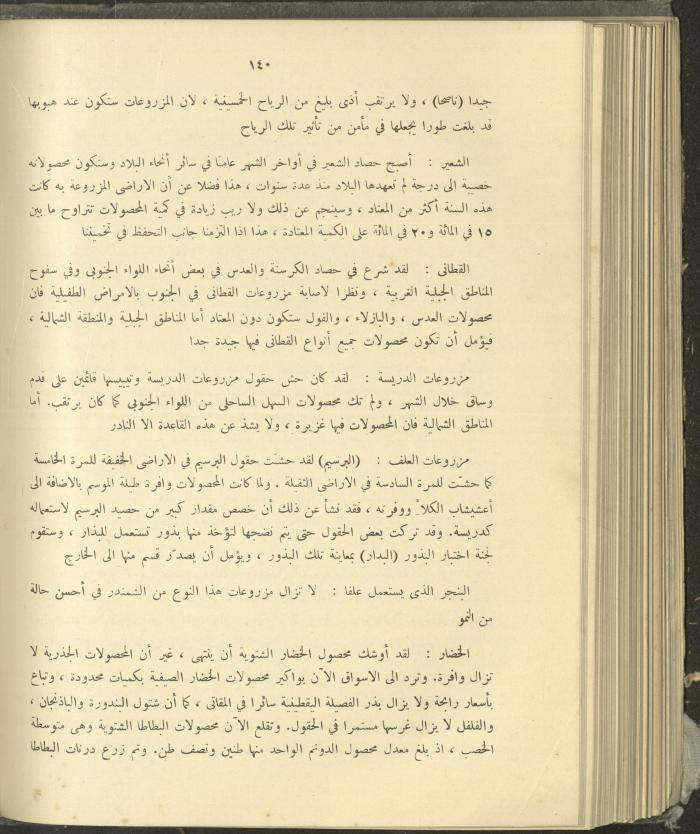 ١٤٠
جيدا (ناضجا) ، ولا يرتقب أذى بليغ من الرياح الخمسينية ، لان المزروعات ستكون عند هبوبها
قد بلغت طورا يجعلها في مأمن من تأثير تلك الرياح
الشعير : أصبح حصاد الشعير في أواخر الشهر عاما في سائر أنحاء البلاد وستكون محصولاته
خصبة الى درجة لم تعهدها البلاد منذ عدة سنوات ، هذا فضلا عن أن الاراضى المزروعة به كانت
هذه السنة أكثر من المعتاد ، وسينجم عن ذلك ولا ريب زيادة في كمية المحصولات تتراوح ما بين
١٥ في المائة و٢٠ في المائة على الكمية المعتادة ، هذا اذا التزمنا جانب التحفظ في تخميننا
القطانى : لقد شرع في حصاد الكرسنة والعدس في بعض أنحاء اللواء الجنوبى وفي سفوح
المناطق الجبلية الغربية ، ونظرا لاصابة مزروعات القطانى في الجنوب بالامراض الطفيلية فان
محصولات العدس ، والبازلاء ، والفول ستكون دون المعتاد أما المناطق الجبلية والمنطقة الشمالية ،
فيؤمل أن تكون محصولات جميع أنواع القطانى فيها جيدة جدا
مزروعات الدريسة : لقد كان حش حقول مزروعات الدريسة وتيبيسها قائمين على قدم
وساق خلال الشهر ، ولم تك محصولات السهل الساحلى من اللواء الجنوبى كما كان يرتقب. أما
المناطق الشمالية فان المحصولات فيها غزيرة ، ولا يشذ عن هذه القاعدة الا النادر
مزروعات العلف : (البرسيم) لقد حشت حقول البرسيم في الاراضى الخفيفة للمرة الخامسة
كما حشت للمرة السادسة في الاراضى الثقيلة . ولما كانت المحصولات وافرة طيلة الموسم بالاضافة الى
أعشيشاب الكلأ ووفرته ، فقد نشأ عن ذلك أن خصص مقدار كبير من حصيد البرسيم لاستعماله
كدريسة. وقد تركت بعض الحقول حتى يتم نضجها لتؤخذ منها بذور تستعمل للبذار ، وستقوم
لجنة اختبار البذور (البدار) بمعاينة تلك البذور ، ويؤمل أن يصدّر قسم منها الى الخارج
البنجر الذى يستعمل علفا : لا تزال مزروعات هذا النوع من الشمندر في أحسن حالة
من النمو
الخضار : لقد أوشك محصول الخضار الشتوية أن ينتهى ، غير أن المحصولات الجذرية لا
تزال وافرة. وترد الى الاسواق الآن بواكير محصولات الخضار الصيفية بكميات محدودة ، وتباع
بأسعار رابحة ولا يزال بذر الفصيلة اليقطينية سائرا في المقاثى ، كما أن شتول البندورة والباذنجان ،
والفلفل لا يزال غرسها مستمرا في الحقول. وتقلع الآن محصولات البطاطا الشتوية وهى متوسطة
الخصب ، اذ بلغ معدل محصول الدونم الواحد منها طنين ونصف طن. وتم زرع درنات البطاطا